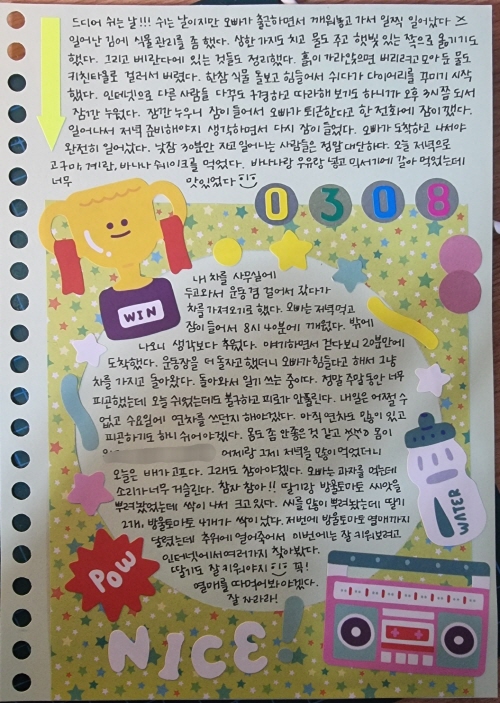 드디어 쉬는 날!!! 쉬는 날이지만 오빠가 출근하면서 깨워놓고 가서 일찍 일어났다
일어난 김에 식물 관리를 좀 했다. 상한 가지도 치고 물도 주고 햇빛 있는 쪽으로 옮기기도
했다. 그리고 베란다에 있는 것들도 정리했다. 흙이 가라앉으면 버리려고 모아 둔 물도
키친타올로 걸러서 버렸다. 한참 식물 돌보고 힘들어서 쉬다가 다이어리를 꾸미기 시작
했다. 인터넷으로 다른 사람들 다꾸도 구경하고 따라해 보기도 하니까 오후 3시쯤 되서
잠깐 누웠다. 잠깐 누우니 잠이 들어서 오빠가 퇴근한다고 한 전화에 잠이 깼다.
일어나서 저녁 준비해야지 생각하면서 다시 잠이 들었다. 오빠가 도착하고 나서야
완전히 일어났다. 낮잠 30분만 자고 일어나는 사람들은 정말 대단하다. 오늘 저녁으로
고구마, 계란, 바나나 쉐이크를 먹었다. 바나나랑 우유랑 넣고 믹서기에 갈아 먹었는데
너무 맛있었다
0308
WIN
내 차를 사무실에
두고 와서 운동 겸 걸어서 갔다가
차를 가져오기로 했다. 오빠는 저녁먹고
잠이 들어서 8시 40분에 깨웠다. 밖에
나오니 생각보다 추웠다. 얘기하면서 걷다보니 20분만에
도착했다. 운동장을 더 돌자고 했더니 오빠가 힘들다고 해서 그냥
차를 가지고 돌아왔다. 돌아와서 일기 쓰는 중이다. 정말 주말동안 너무
피곤했는데 오늘 쉬었는데도 불구하고 피로가 안풀린다. 내일은 어쩔 수
없고 수요일에 연차를 쓰던지 해야겠다. 아직 연차도 많이 있고
피곤하기도 하니 쉬어야겠다. 몸도 좀 안좋은 것 같고 몸이
어제랑 그제 저녁을 많이 먹었더니
오늘은 배가 고프다. 그래도 참아야겠다. 오빠는 과자를 먹는데
소리가 너무 거슬린다. 참자 참아!! 딸기랑 방울토마토 씨앗을
뿌려놨었는데 싹이 나서 크고 있다. 씨를 많이 뿌려놨는데 딸기
2개, 방울토마토 4개가 싹이 났다. 저번에 방울토마토 열매까지
달렸는데 추위에 얼어죽어서 이번에는 잘 키워보려고
인터넷에서 여러가지 찾아봤다.
딸기도 잘 키워야지 꼭!
열매를 따먹어봐야겠다.
잘 자라라!
WATER
POW
NICE!